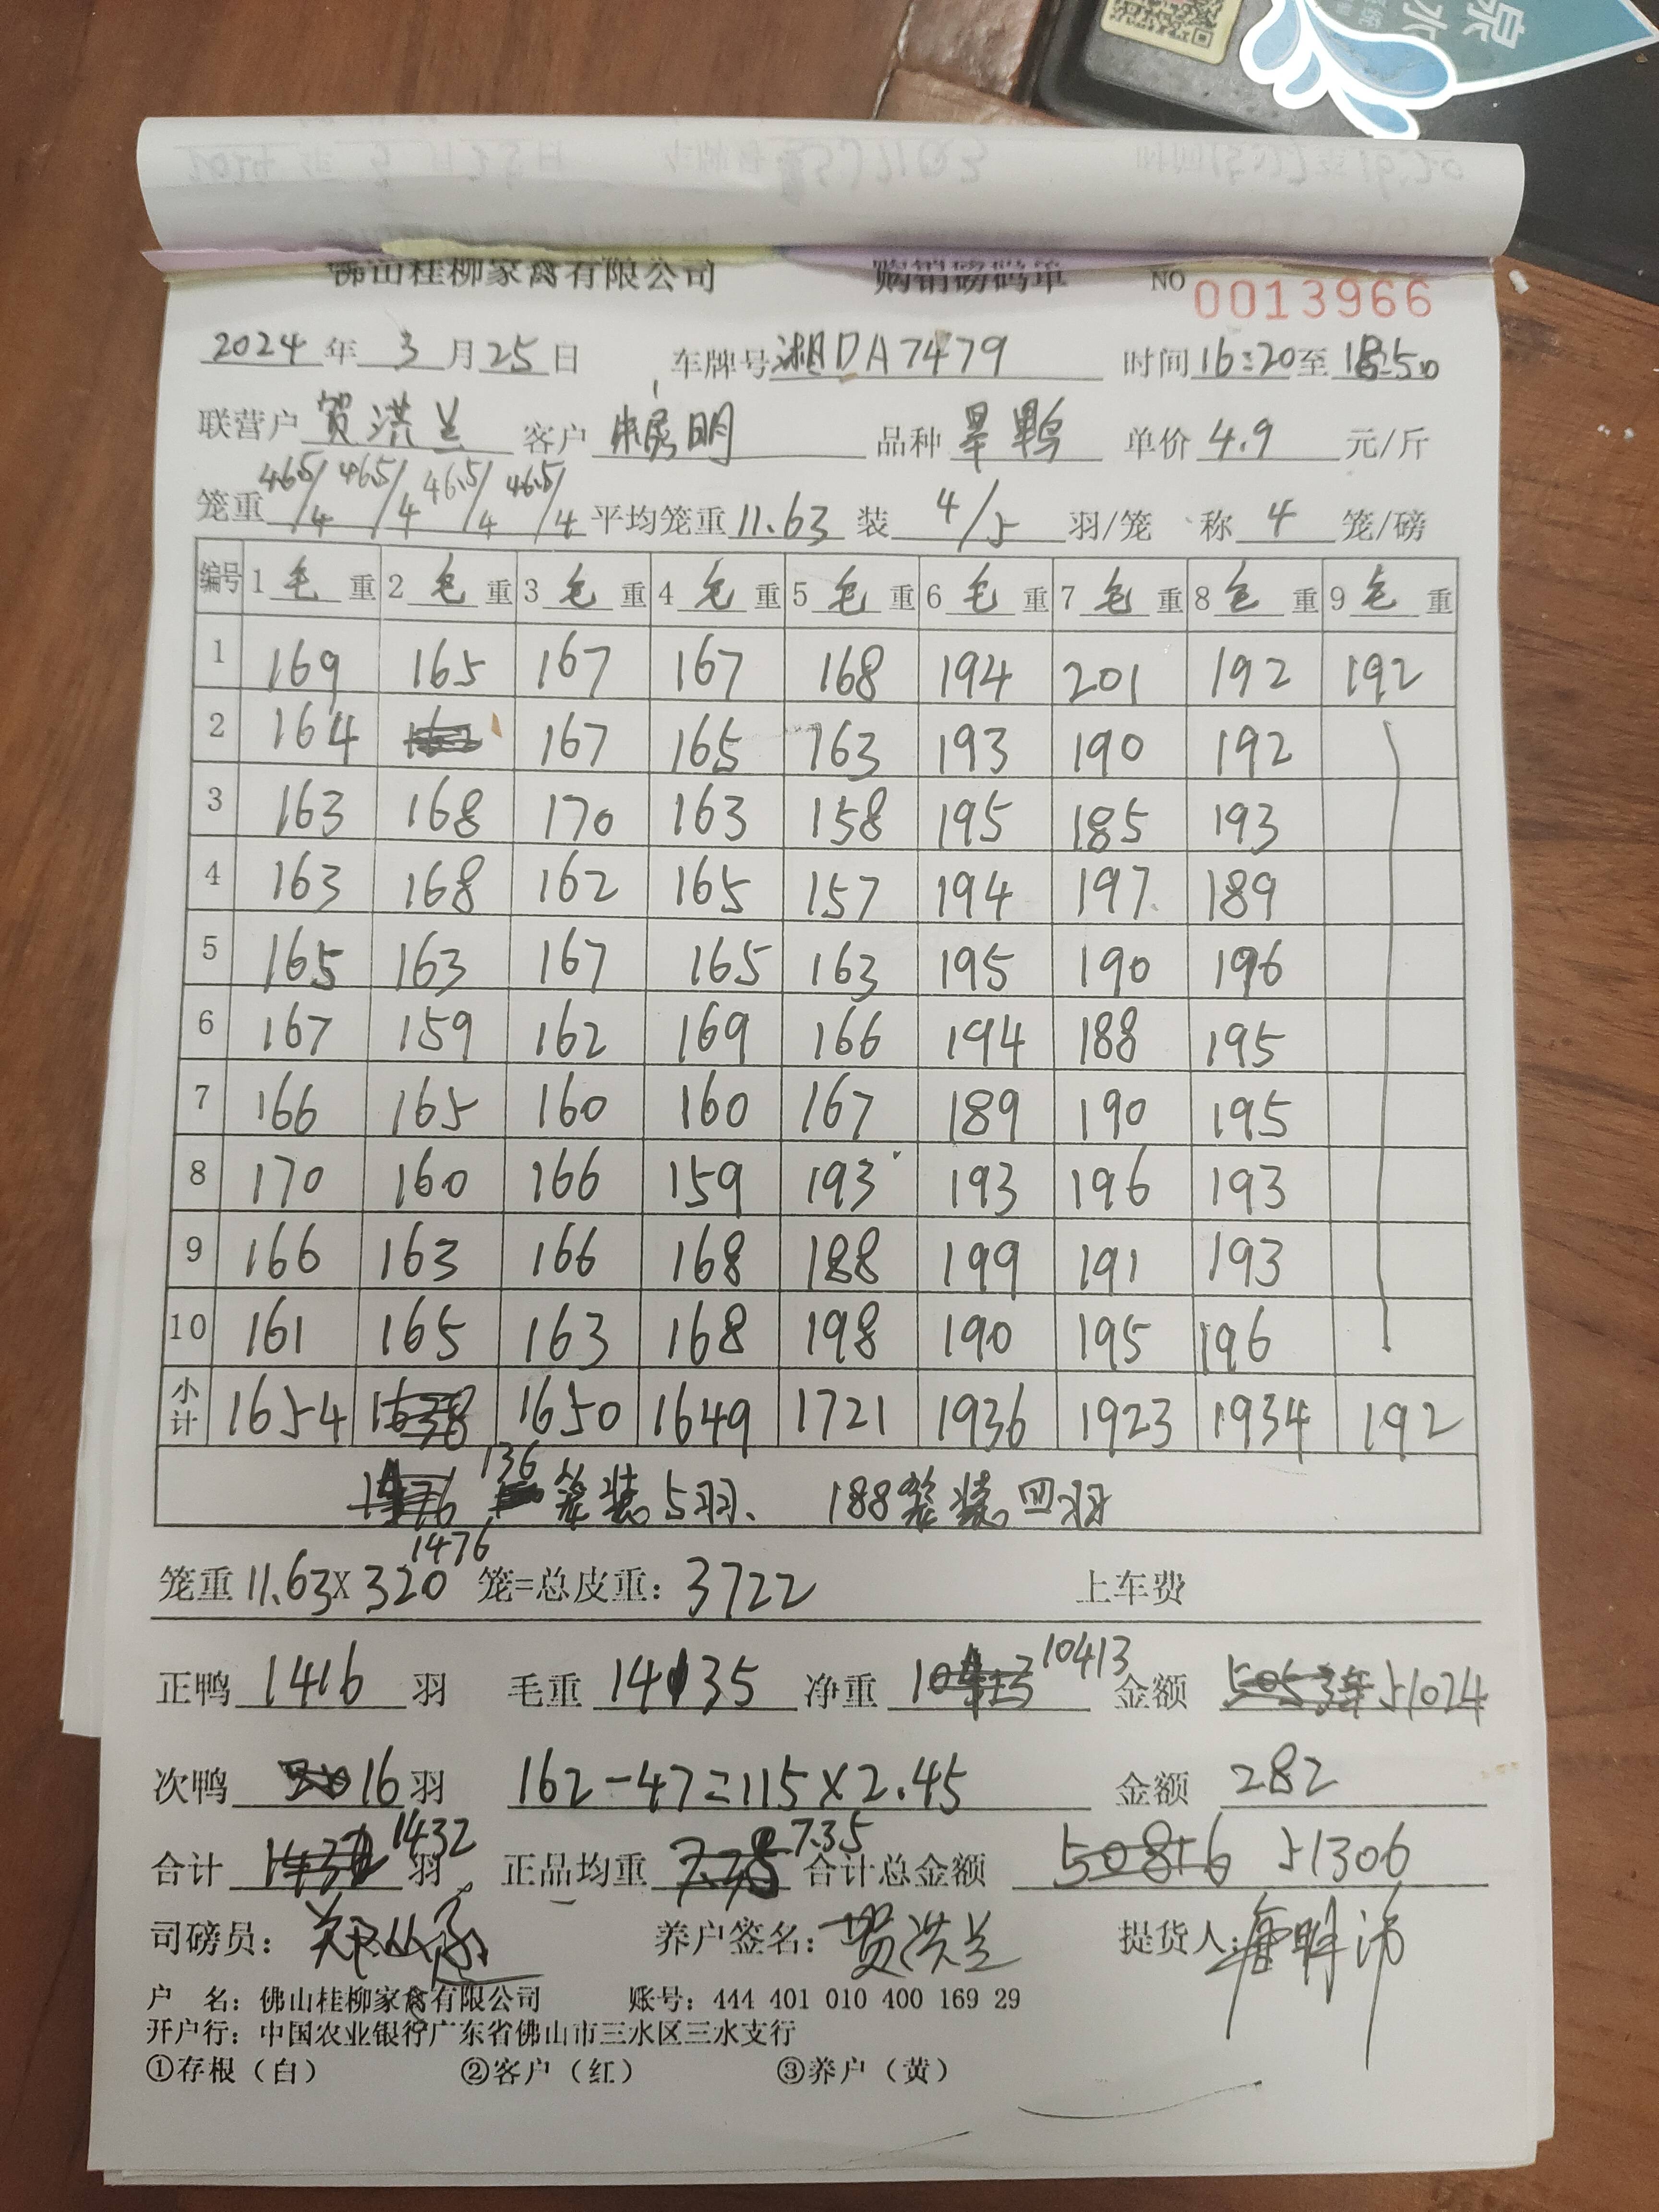 泉
水
佛山桂柳家禽有限公司 购销磅码单 NO 0013966
2024 年 3 月 25 日 车牌号 湘DA7479 时间 16:20 至 18:50
联营户 贺洪兰 客户 明 品种 旱鸭 单价 4.9 元/斤
笼重 46.5/4 46.5/4 46.5/4 46.5/4 平均笼重 11.63 装 4/5 羽/笼 称 4 笼/磅
编号 1 毛 重 2 毛 重 3 毛 重 4 毛 重 5 毛 重 6 毛 重 7 毛 重 8 毛 重 9 毛 重
1 169 165 167 167 168 194 201 192 192
2 164 167 165 163 193 190 192
3 163 168 170 163 158 195 185 193
4 163 168 162 165 157 194 197 189
5 165 163 167 165 163 195 190 196
6 167 159 162 169 166 194 188 195
7 166 165 160 160 167 189 190 195
8 170 160 166 159 193 193 196 193
9 166 163 166 168 188 199 191 193
10 161 165 163 168 198 190 195 196
小计 1654 1638 1650 1649 1721 1936 1923 1934 192
136 笼装5羽、 188笼装四羽
1476
笼重 11.63×320 笼=总皮重: 3722 上车费
正鸭 1416 羽 毛重 14135 净重 10413 金额 51024
次鸭 16 羽 162-47=115×2.45 金额 282
合计 1432 羽 正品均重 7.35 合计总金额 50816 51306
司磅员: 养户签名: 贺洪兰 提货人:
户 名: 佛山桂柳家禽有限公司 账号: 444 401 010 400 169 29
开户行: 中国农业银行广东省佛山市三水区三水支行
①存根（白） ②客户（红） ③养户（黄）